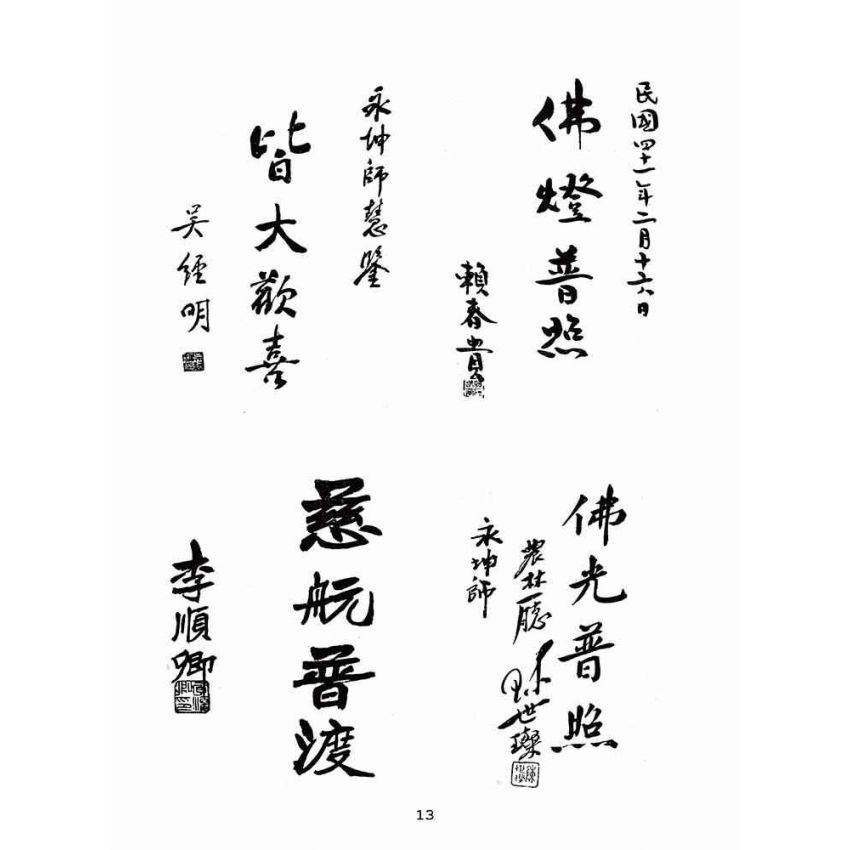 民國四十一年二月十六日
佛燈普照
賴春貴
永坤師慧鑒
皆大歡喜
吳經明
佛光普照
農林廳
陳世璨
永坤師
慈航普渡
李順卿
13